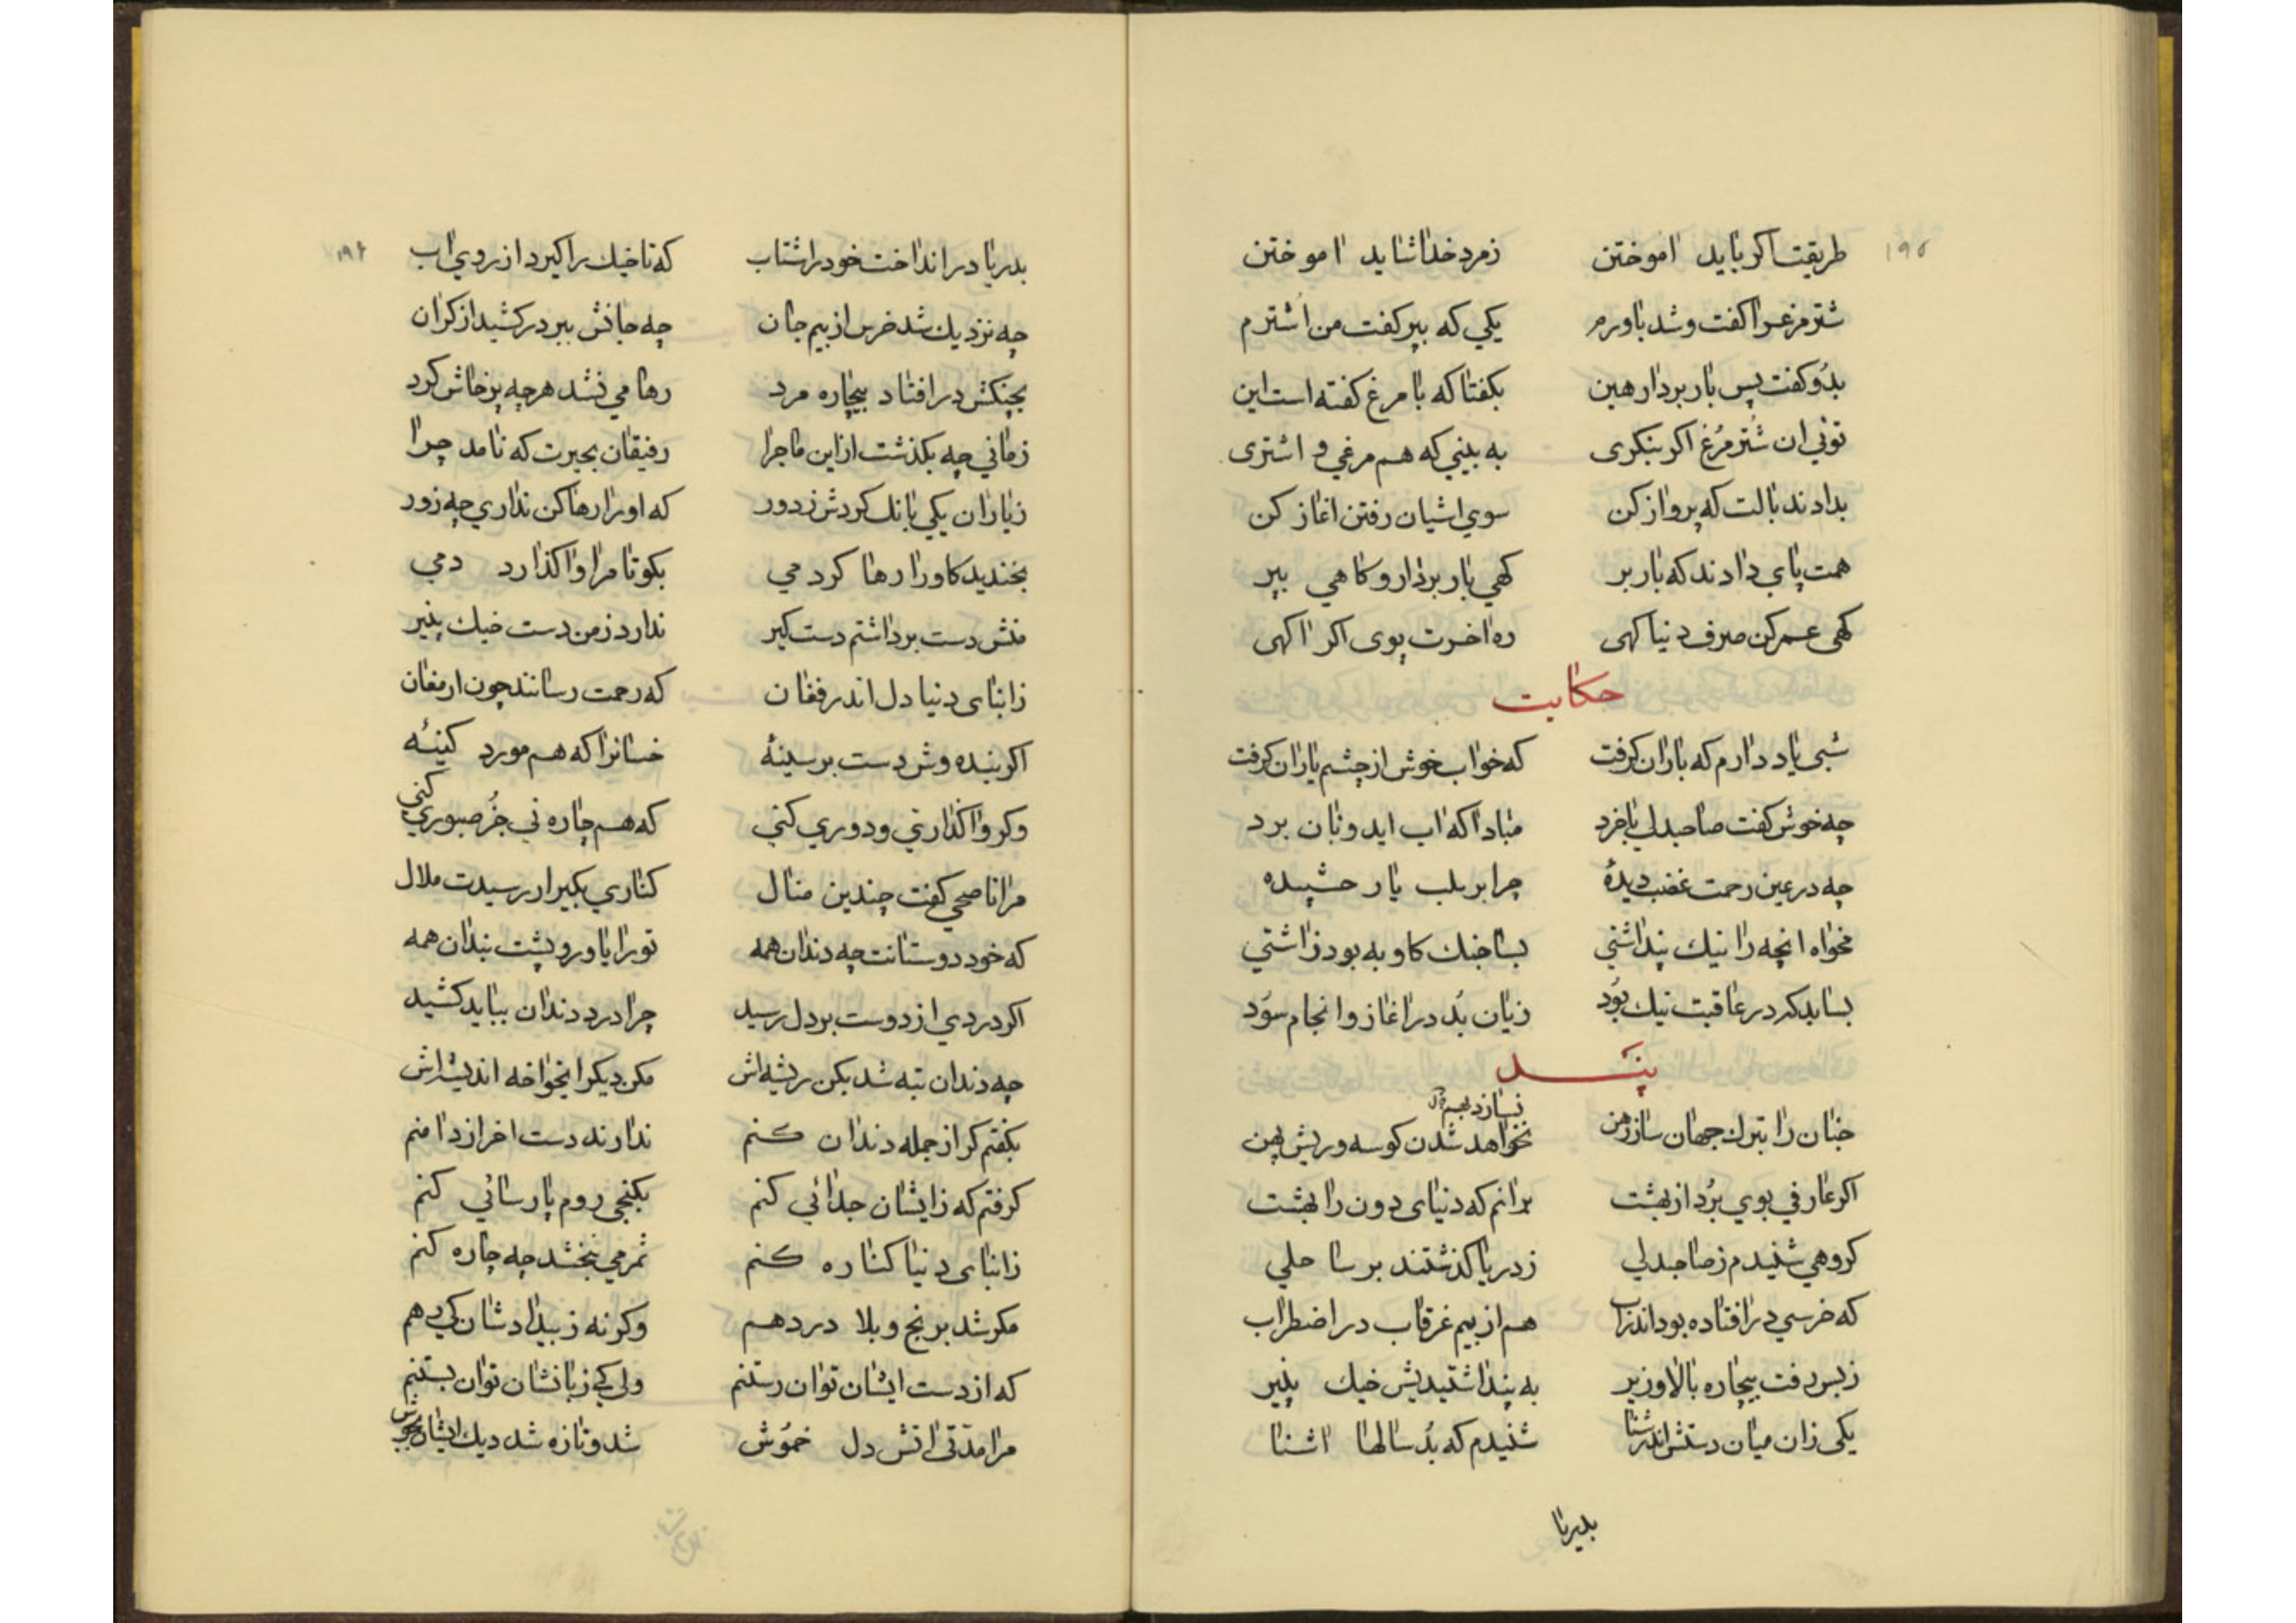 ۱۹۵
طریقت اکر باید اموختن زمرد خدا شاید اموختن
شتر مرغ را کفت و شد باورم یکی که ببر کفت من اشترم
بدو کفت پس بار بردار هین بکفتا که با مرغ کفته است این
توئی ان شتر مرغ اکر بنکری به بینی که هم مرغی و اشتری
بدادند بالت که پرواز کن سوی اشیان رفتن اغاز کن
همت پای دادند که بار بر کهی بار بردار و کاهی بپر
کهی عمر کن صرف دنیا کهی ره اخرت پوی اکر اکهی
حکایت
شبی یاد دارم که باران کرفت که خواب خوش از چشم یاران کرفت
چه خوش کفت صاحبدلی باخرد مبادا که اب اید و نان برد
چه در عین رحمت غضب دیدهٔ چرا بر بلب یار حشیده
مخواه انچه را نیک پنداشتی بسا جنک کاو به بود زاشتی
بسا بد که در عاقبت نیک بود زیان بد در اغاز و انجام سود
پند
جنان را بترک جهان ساز رهن نخواهد شدن کوسه و ریش پهن
اکر عارفی بوی برد از بهشت برانم که دنیای دون را بهشت
کروهی شنیدم ز صاحبدلی ز دریا کذشتند بر ساحلی
که خرسی در افتاده بود اندراب هم از بیم غرقاب در اضطراب
زبس رفت بیچاره بالا و زیر به پنداشتیدیش خیک پنیر
یکی زان میان دستش اندر شنا شنیدم که بد سالها اشنا
بدریا
۱۹۶
بدریا در انداخت خود را شتاب که تا خیک را کیرد از روی اب
چه نزدیک شد خرس از بیم جان چه جانش ببر در کشید از کران
بچنکش در افتاد بیچاره مرد رها می نشد هر چه پرخاش کرد
زمانی چه بکذشت از این ماجرا رفیقان بحیرت که نامد چرا
ز یاران یکی بانک کردش ز دور که او را رها کن نداری چه زور
بخندید کاو را رها کردمی بکو تا مرا واکذارد دمی
منش دست برداشتم دست کیر ندارد ز من دست خیک پنیر
زابنای دنیا دل اندر فغان که رحمت رسانند چون ارمغان
اکر بنده وش دست بر سینهٔ خسانرا که هم مورد کینهٔ
و کر واکذاری و دوری کنی که هم چاره نی جز صبوری کنی
مرا ناصحی کفت چندین منال کناری بکیر ار رسیدت ملال
که خود دوستانت چه دندان همه تو را یاور و پشت بندان همه
اکر دردی از دوست بر دل رسید چرا درد دندان بباید کشید
چه دندان تبه شد بکن ریشه اش مکن دیکر انخواخه اندیشه اش
بکفتم کر از جمله دندان کنم ندارند دست اخر از دامنم
کرفتم که زایشان جدائی کنم بکنجی روم پارسائی کنم
زابنای دنیا کناره کنم ثمر می نبخشد چه چاره کنم
مکر شد برنج و بلا در دهم و کر نه ز بیدادشان کی دهم
که از دست ایشان توان رستنم ولی کی زبانشان توان بستنم
مرا مدتی اتش دل خموش شد و تازه شد دیک ایشان بجوش